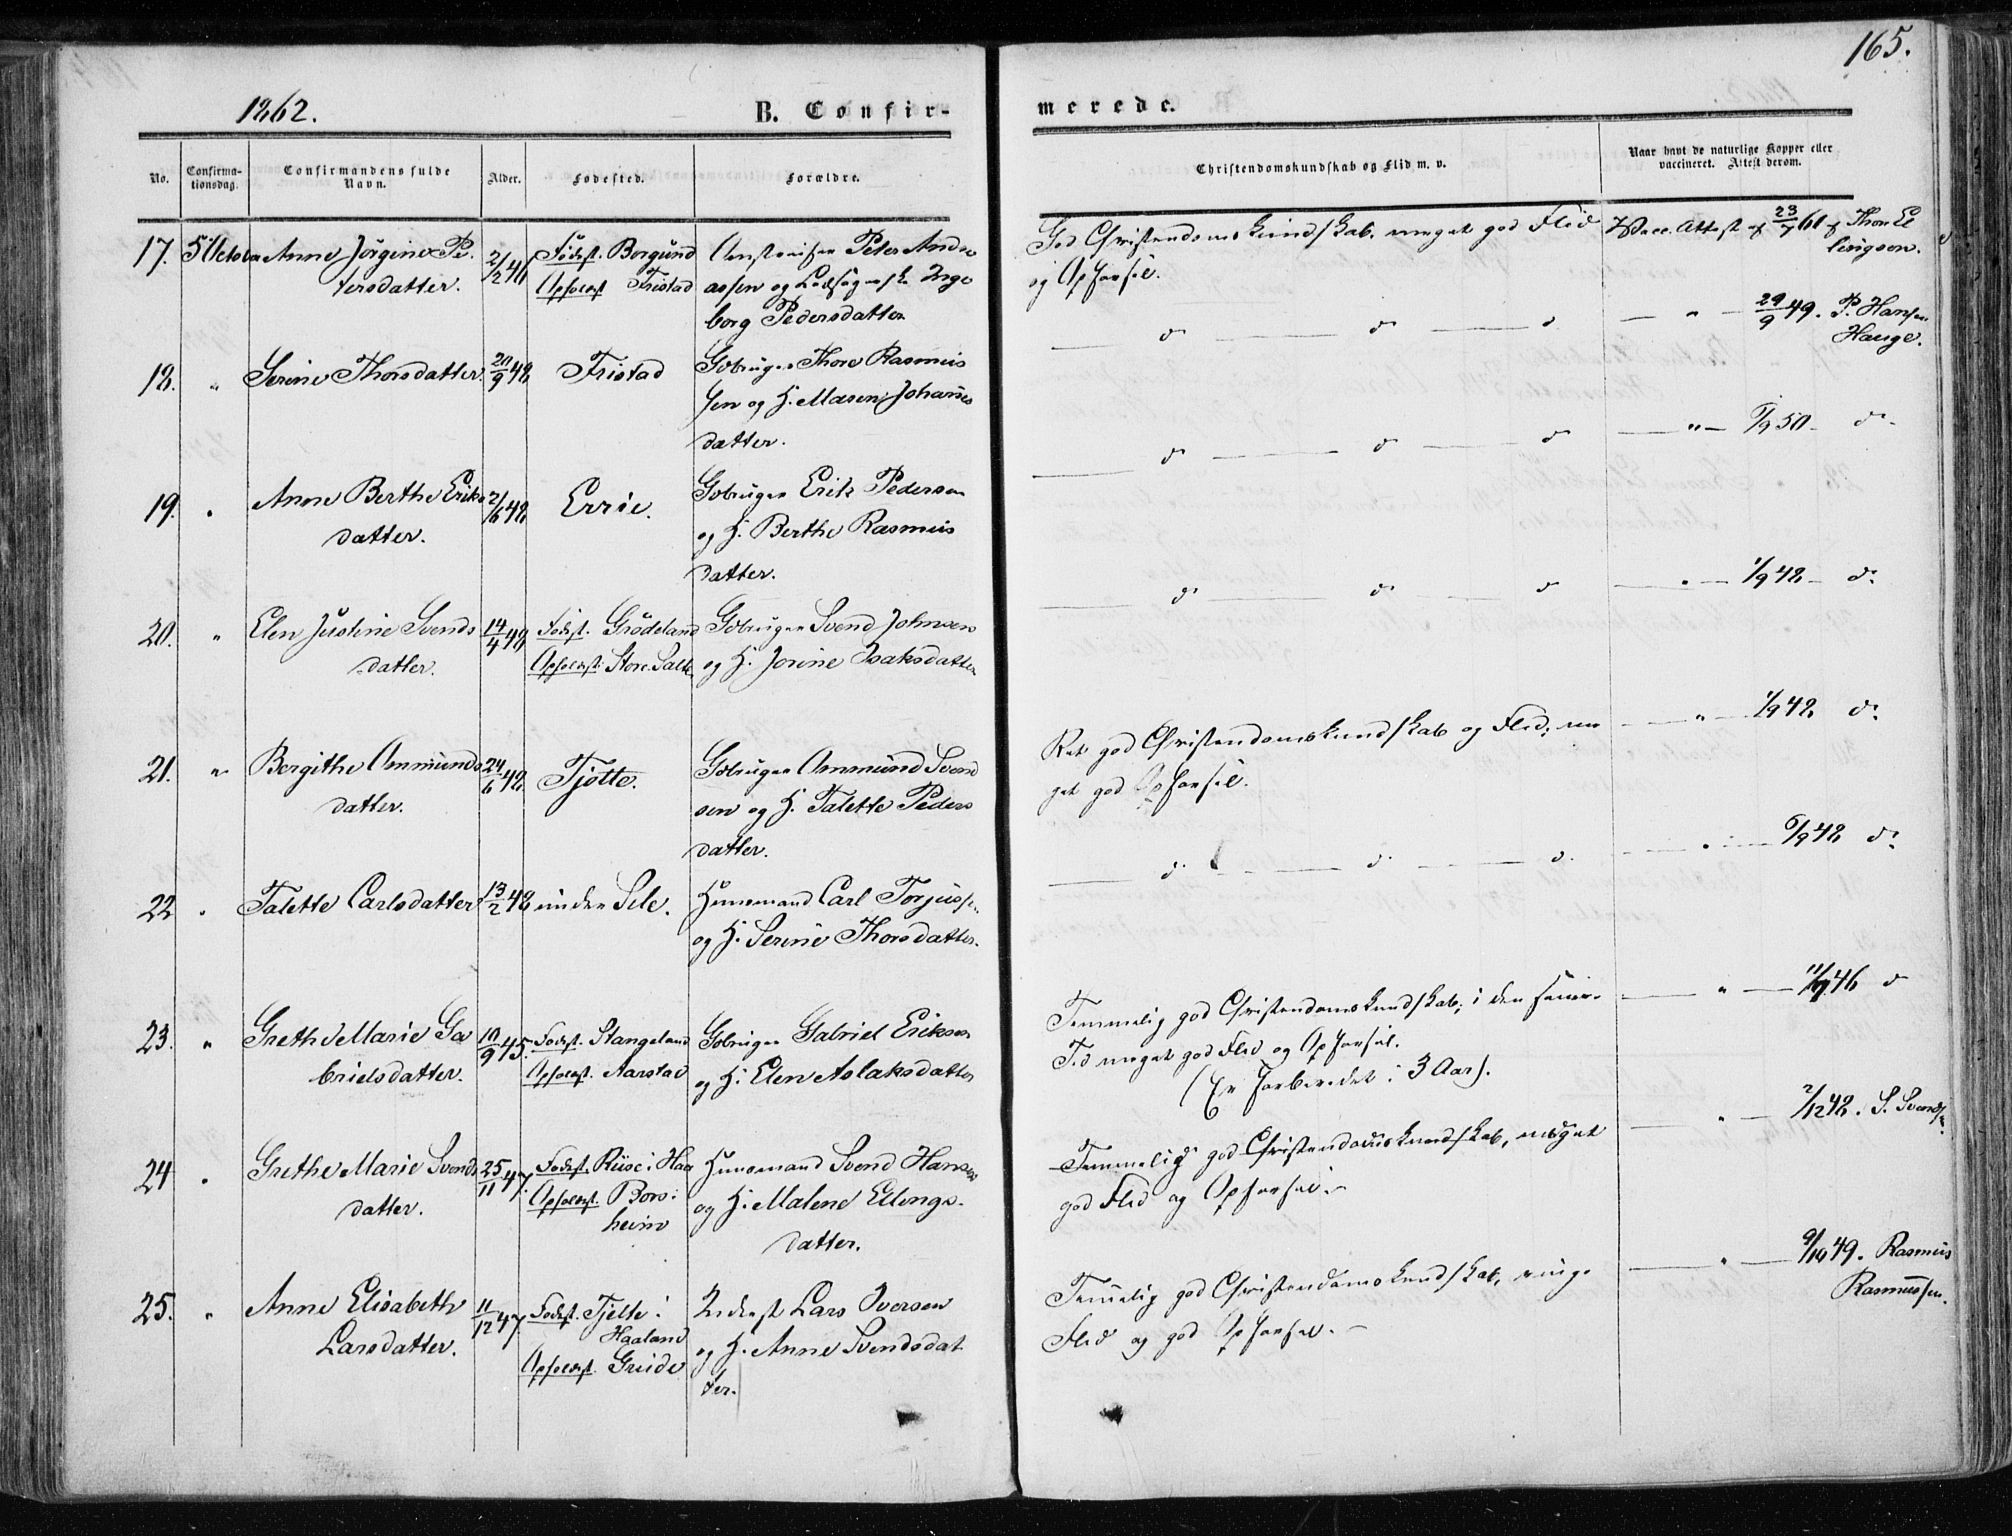 165.
1862.
B. Confir-
merede.
No.
Confirma-
tionsdag.
Confirmandens fulde
Navn.
Alder.
Fødested.
Forældre.
Christendomskundskab og Flid m. v.
Naar havt de naturlige Kopper eller
vaccineret. Attest derom.
17. 5 October Anne Jørgine Pe
tersdatter.
2/2 46
Fødest. Borgund
Opholdsst Fristad
Peter Andre
assen og Inge
borg Pedersdatter
God Christendomskundskab, meget god Flid
og Opførsel.
Vacc. Attest af 23/7 61 af Thor El
lingsen.
18. " Serine Thorsdatter. 20/9 48 Fristad
Gbruger Thore Rasmus
sen og H. Maren Johannes
datter.
d° d° d° " 29/9 49. P. Hansen
Hauge.
19. " Anne Berthe Eriks
datter.
2/6 48 Errie.
Gbruger Erik Pedersen
og H. Berthe Rasmus
datter.
d° d° d° " 6/9 50 d°
20. " Elen Justine Svends
datter.
14/4 48
Fødest. Grødeland
Opholdsst. Store Salte
Gbruger Svend Johnsen
og H. Jorine Isaksdatter
d° d° d° " 1/9 48 d°
21. " Bergithe Ommunds
datter.
24/6 48 Tjøtte.
Gbruger Ommund Svend
sen og H. Talette Peders
datter.
Ret god Christendomskundskab og Flid; me
get god Opførsel.
" 1/9 48 d°
22 " Talette Carlsdatter 13/2 48 under Sele.
Huusmand Carl Torjussen
og H. Serine Thorsdatter.
d° d° d° " 6/9 48 d°
23. " Grethe Marie Ga
brielsdatter.
10/9 45.
Fødest. Stangeland
Opholdsst. Aarstad
Gbruger Gabriel Eriksen
og H. Elen Aslaksdatter
Temmelig god Christendomskundskab; i den senere
Tid meget god Flid og Opførsel.
(Er forberedet i 3 Aar).
" 11/9 46 d°
24 " Grethe Marie Svends
datter.
25/11 47.
Fødest. Riise i Haa
Opholdsst. Bors
heim
Huusmand Svend Hansen
og H. Malene Ellings-
datter.
Temmelig god Christendomskundskab, meget
god Flid og Opførsel.
" 2/12 48. S. Svendsen
25. " Anne Elisabeth
Larsdatter.
11/12 47.
Fødest. Tjelte i
Haaland
Opholdsst. Grude
Inderst Lars Iversen
og H. Anne Svendsdat
ter.
Temmelig god Christendomskundskab, ringe
Flid og god Opførsel.
" 9/10 49. Rasmus
Rasmussen.